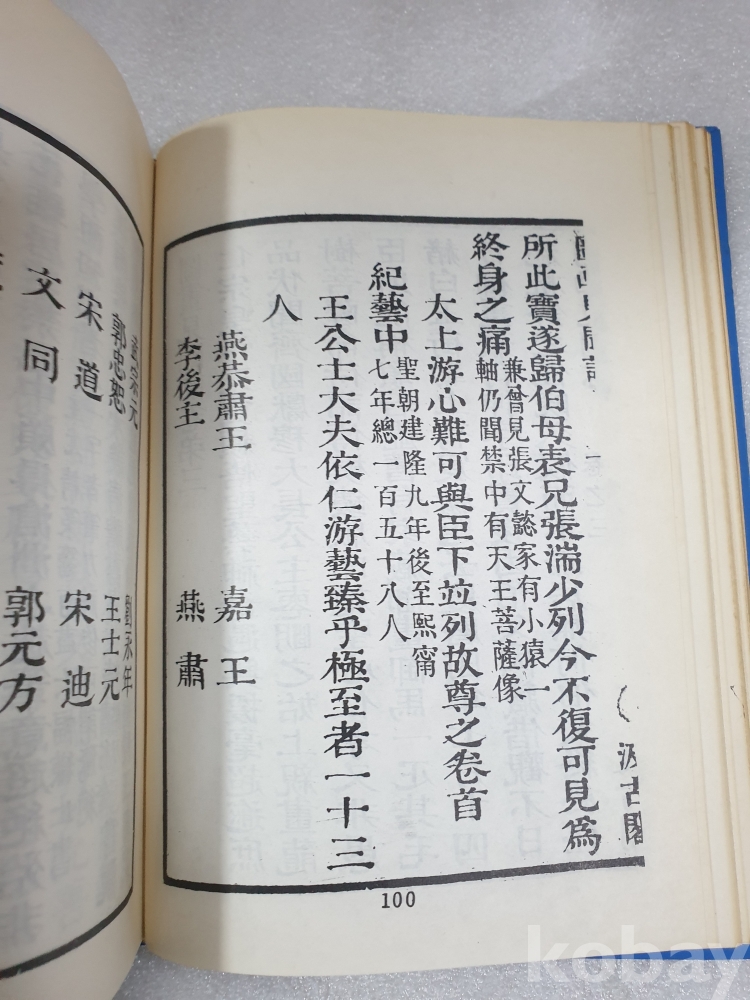 圖畫見聞誌 汲古閣
所此寶遂歸伯母表兄張湍少列今不復可見為
終身之痛
兼曾見張文懿家有小猿一
軸仍聞禁中有天王菩薩像
太上游心難可與臣下並列故尊之卷首
紀藝中
聖朝建隆九年後至熙甯
七年總一百五十八人
王公士大夫依仁游藝臻乎極至者一十三
人
燕恭肅王 嘉王
李後主 燕肅
100
武宗元 劉永年
郭忠恕 王士元
宋道 宋迪
文同 郭元方
kobay